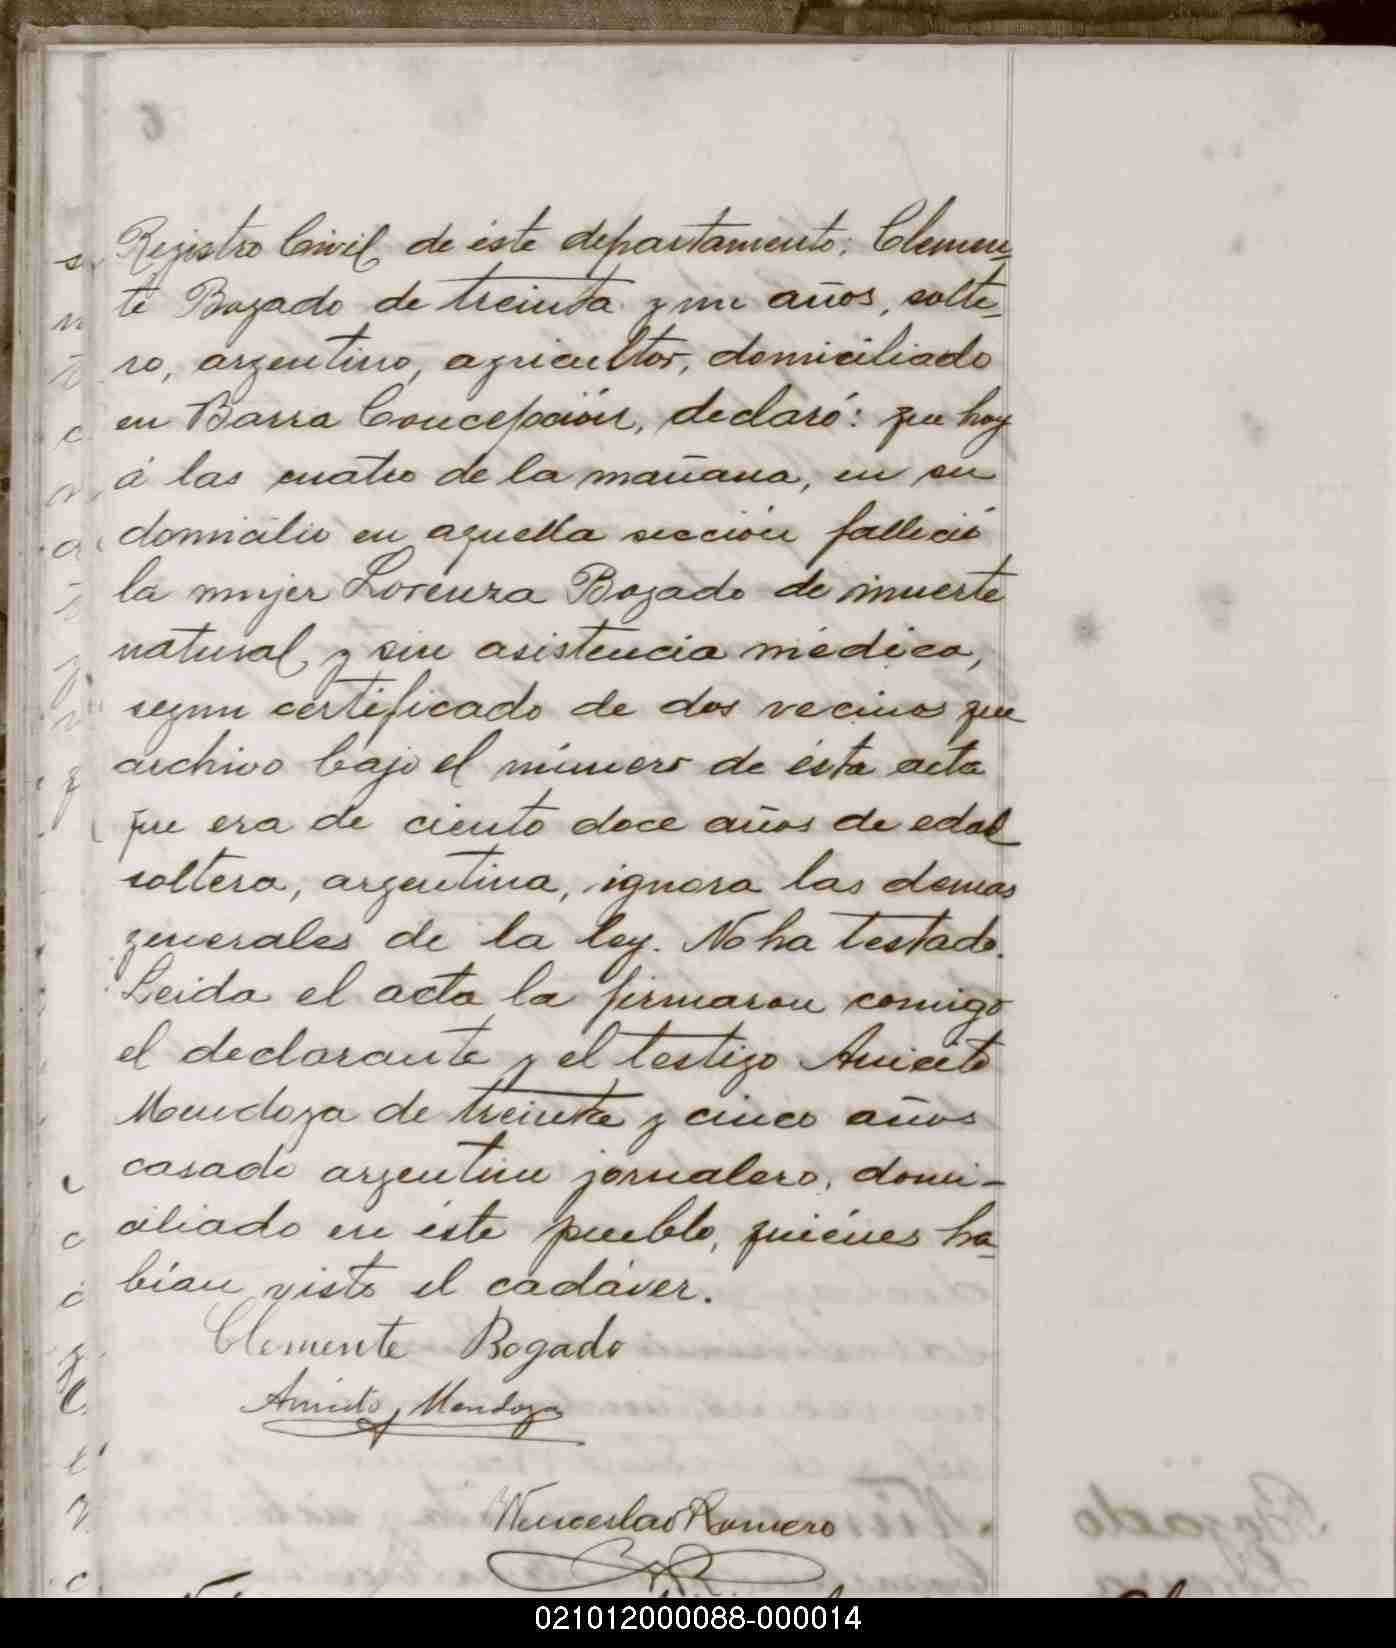 Registro Civil de éste departamento; Clemen-
te Bogado de treinta y un años, solte-
ro, argentino, agricultor, domiciliado
en Barra Concepción, declaró: que hoy
á las cuatro de la mañana, en su
domicilio en aquella sección falleció
la mujer Lorenza Bogado de muerte
natural y sin asistencia médica,
segun certificado de dos vecinos que
archivo bajo el número de ésta acta
que era de ciento doce años de edad
soltera, argentina, ignora las demas
generales de la ley. No ha testado.
Leida el acta la firmaron comigo
el declarante y el testigo Aniceto
Mendoza de treinta y cinco años
casado argentino jornalero, domi-
ciliado en éste pueblo, quiénes ha-
bían visto el cadáver.
Clemente Bogado
Aniceto Mendoza
Wenceslao Romero
021012000088-000014